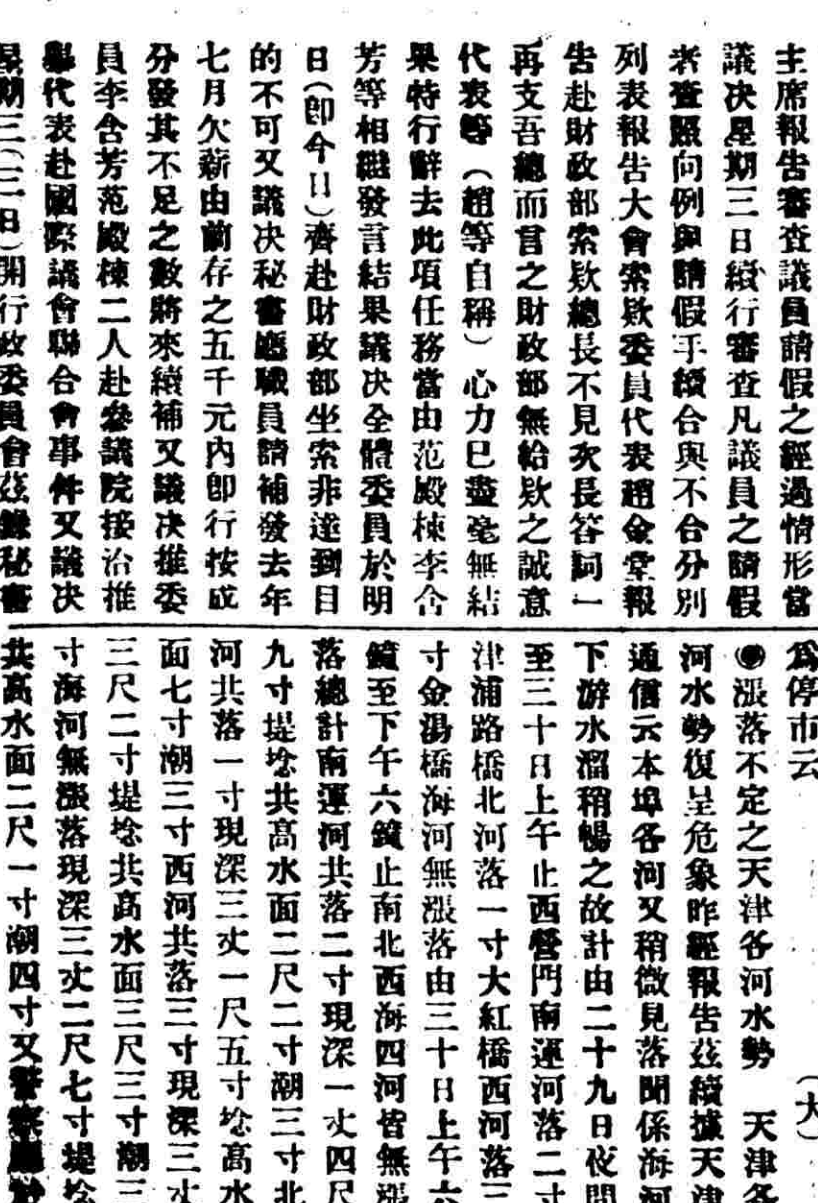 主席報告審查議員請假之經過情形當
議决星期三日續行審查凡議員之請假
者查照向例與請假手續合與不合分別
列表報告大會索欵委員代表趙金堂報
告赴財政部索欵總長不見次長答詞一
再支吾總而言之財政部無給欵之誠意
代表等（趙等自稱）心力已盡毫無結
果特行辭去此項任務當由范殿棟李含
芳等相繼發言結果議决全體委員於明
日（即今日）齊赴財政部坐索非達到目
的不可又議决秘書廳職員請補發去年
七月欠薪由前存之五千元內即行按成
分發其不足之數將來續補又議决推委
員李含芳范殿棟二人赴參議院接洽推
舉代表赴國際議會聯合會事件又議决
星期三（三日）開行政委員會茲錄秘書
爲停市云
（大）
◉漲落不定之天津各河水勢　天津各
河水勢復呈危象昨經報告茲續據天津
通信云本埠各河又稍微見落聞係海河
下游水溜稍暢之故計由二十九日夜間
至三十日上午止西營門南運河落二寸
津浦路橋北河落一寸大紅橋西河落三
寸金湯橋海河無漲落由三十日上午六
鐘至下午六鐘止南北西海四河皆無漲
落總計南運河共落二寸現深一丈四尺
九寸堤埝共高水面二尺二寸潮三寸北
河共落一寸現深三丈一尺五寸埝高水
面七寸潮三寸西河共落三寸現深三丈
三尺二寸堤埝共高水面三尺三寸潮三
寸海河無漲落現深三丈二尺七寸堤埝
共高水面二尺一寸潮四寸又警察廳